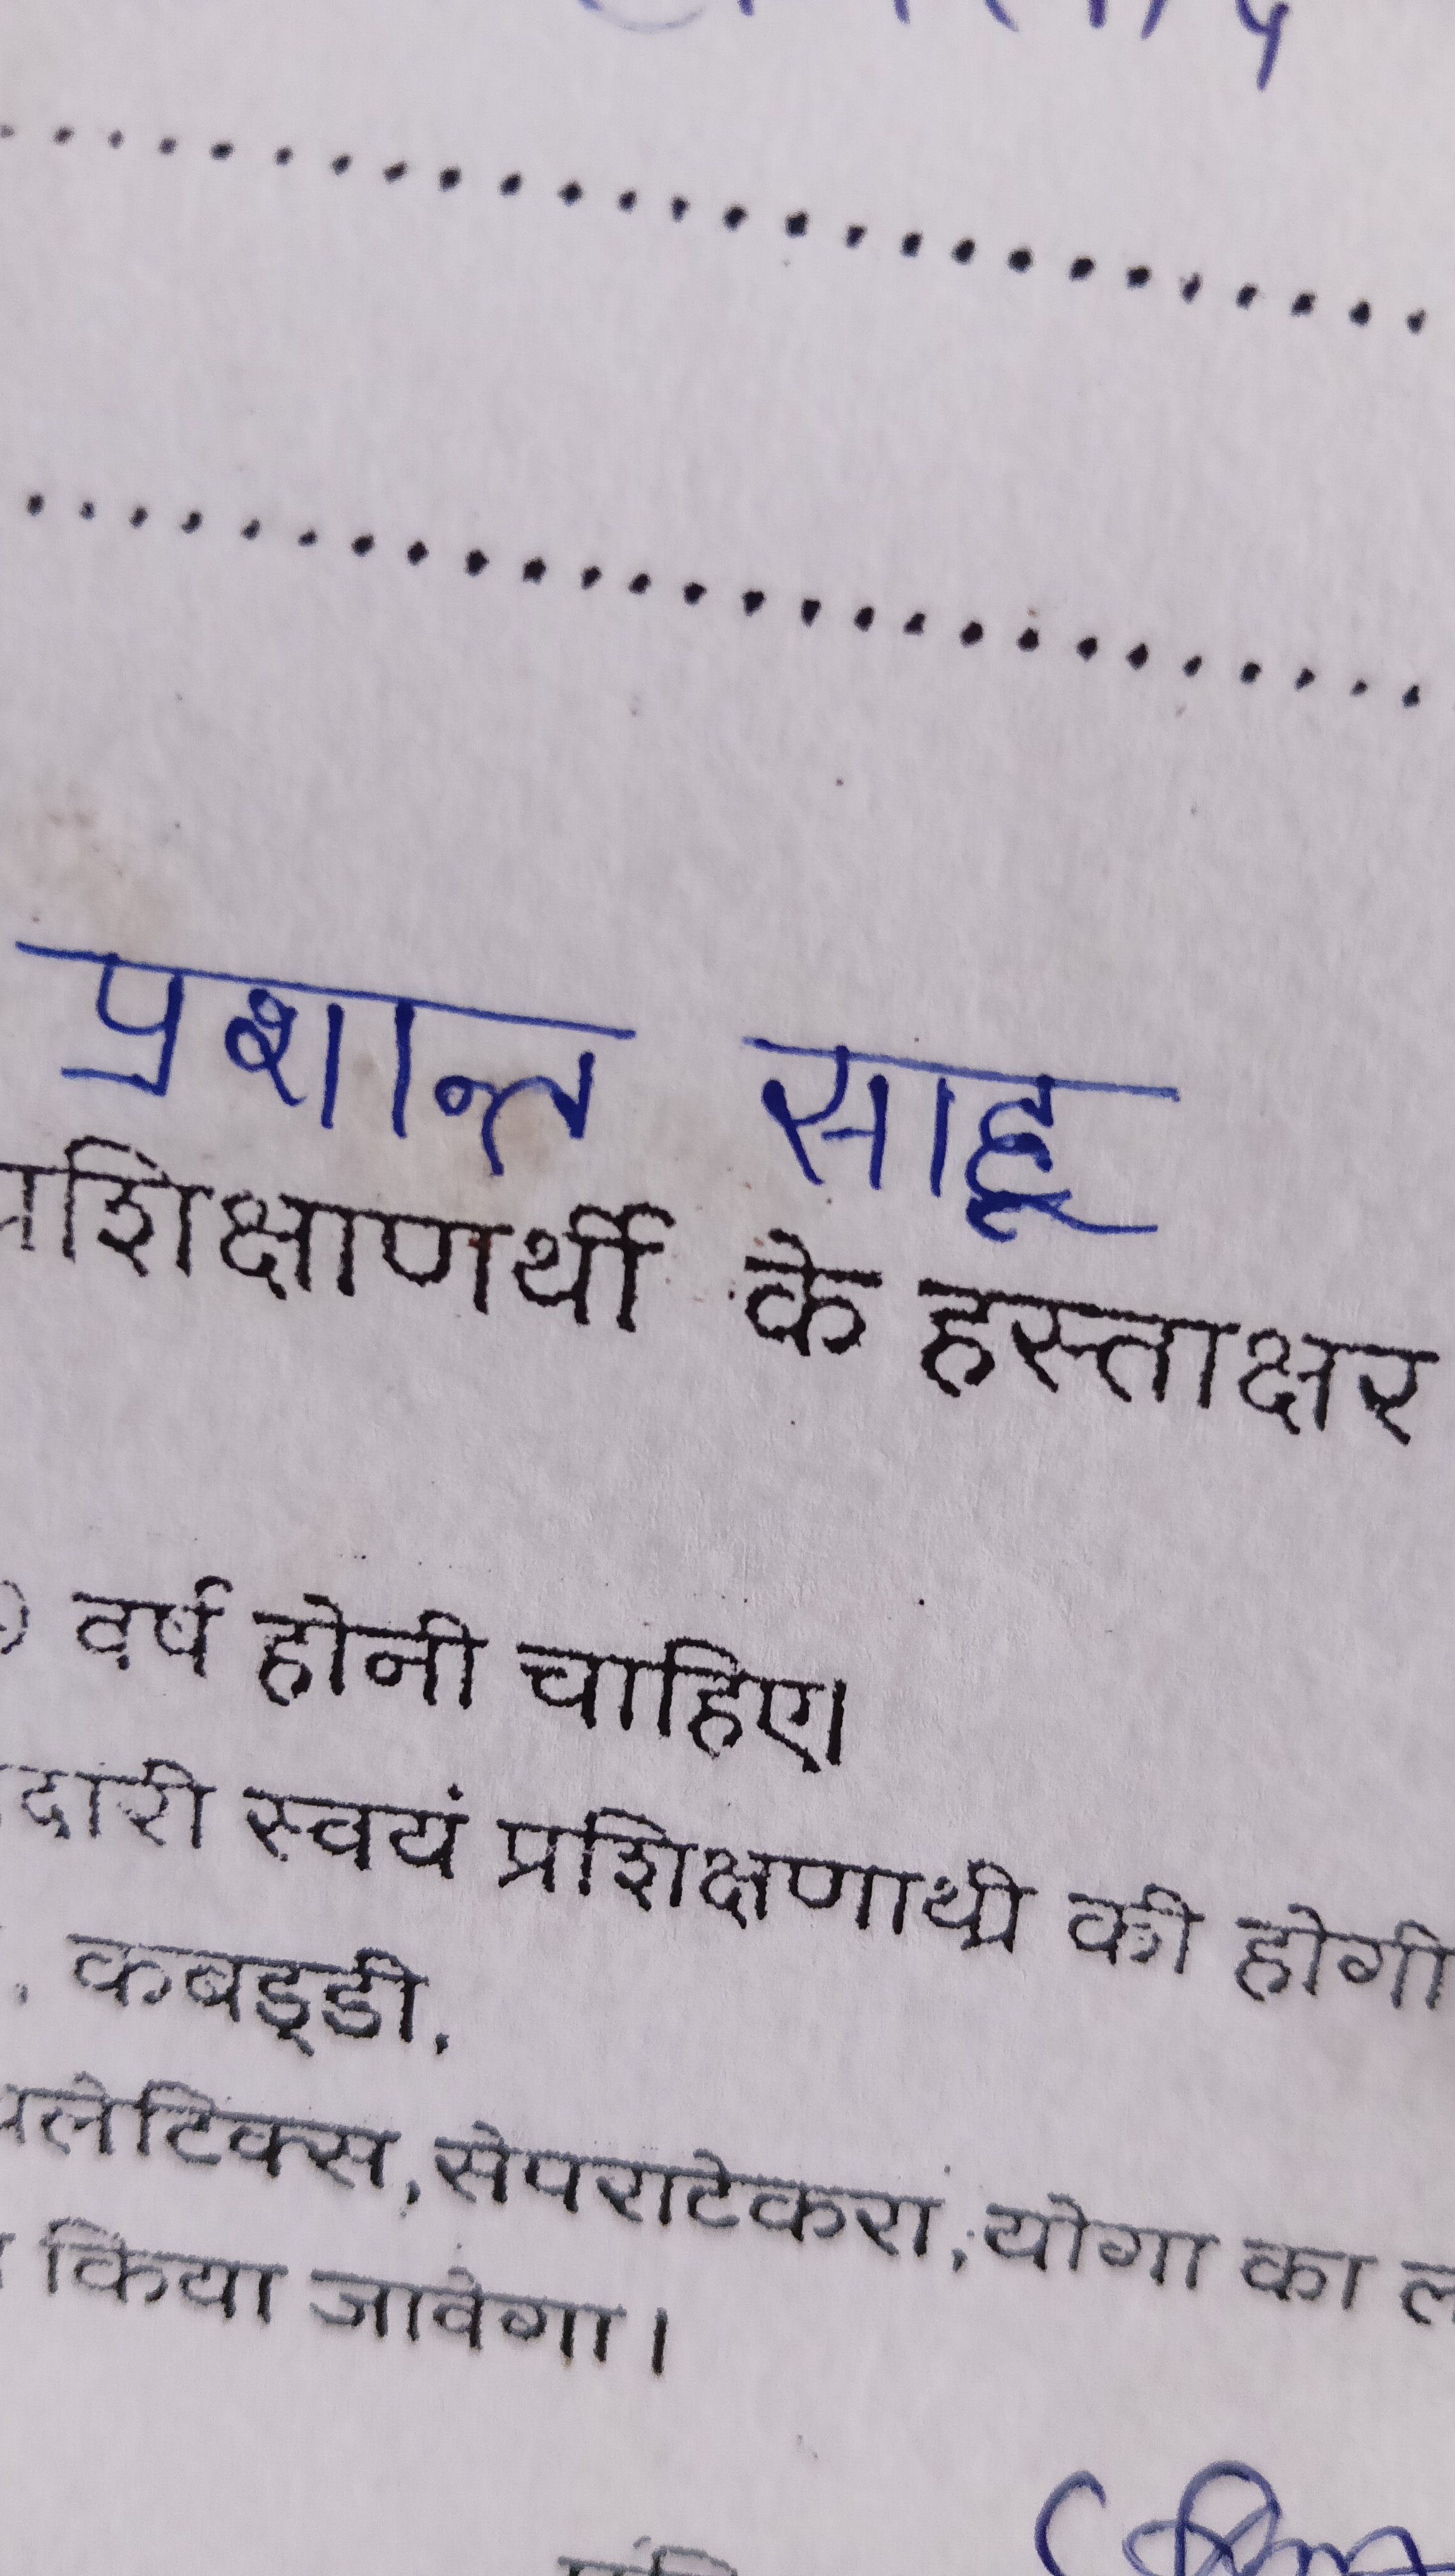 प्रशान्त साहू
प्रशिक्षाणर्थी के हस्ताक्षर
वर्ष होनी चाहिए।
स्वयं प्रशिक्षणार्थी की होगी
. कबड्डी.
,सेपराटेकरा,योगा का
किया जावेगा।